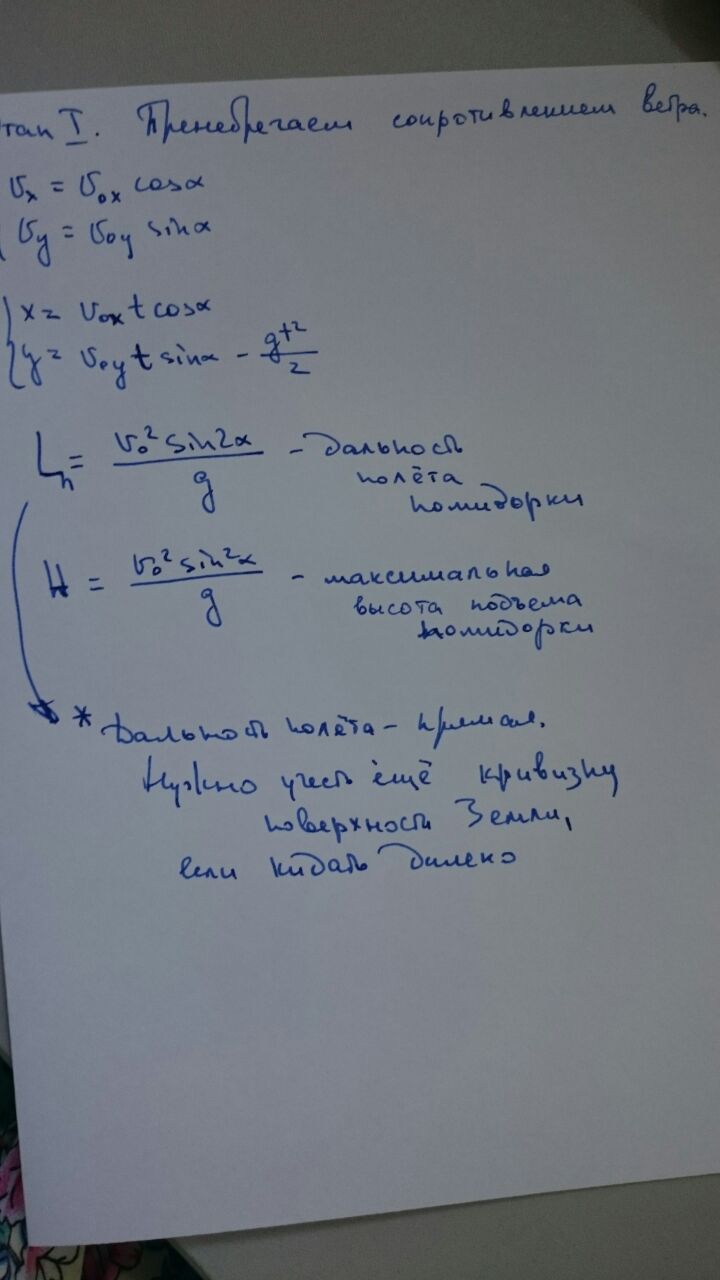 тап I. Пренебрегаем сопротивлением ветра.
υₓ = υ₀ₓ cosα
υy = υ₀y sinα
x = υ₀ₓ t cosα
y = υ₀y t sinα - gt²/2
Lп = υ₀² sin2α / g - дальность
полёта
помидорки
H = υ₀² sin²α / g - максимальная
высота подъема
помидорки
* Дальность полёта - прямая.
Нужно учесть ещё кривизну
поверхности Земли,
если кидать далеко